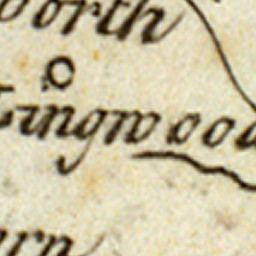 orth
ingwood
rn